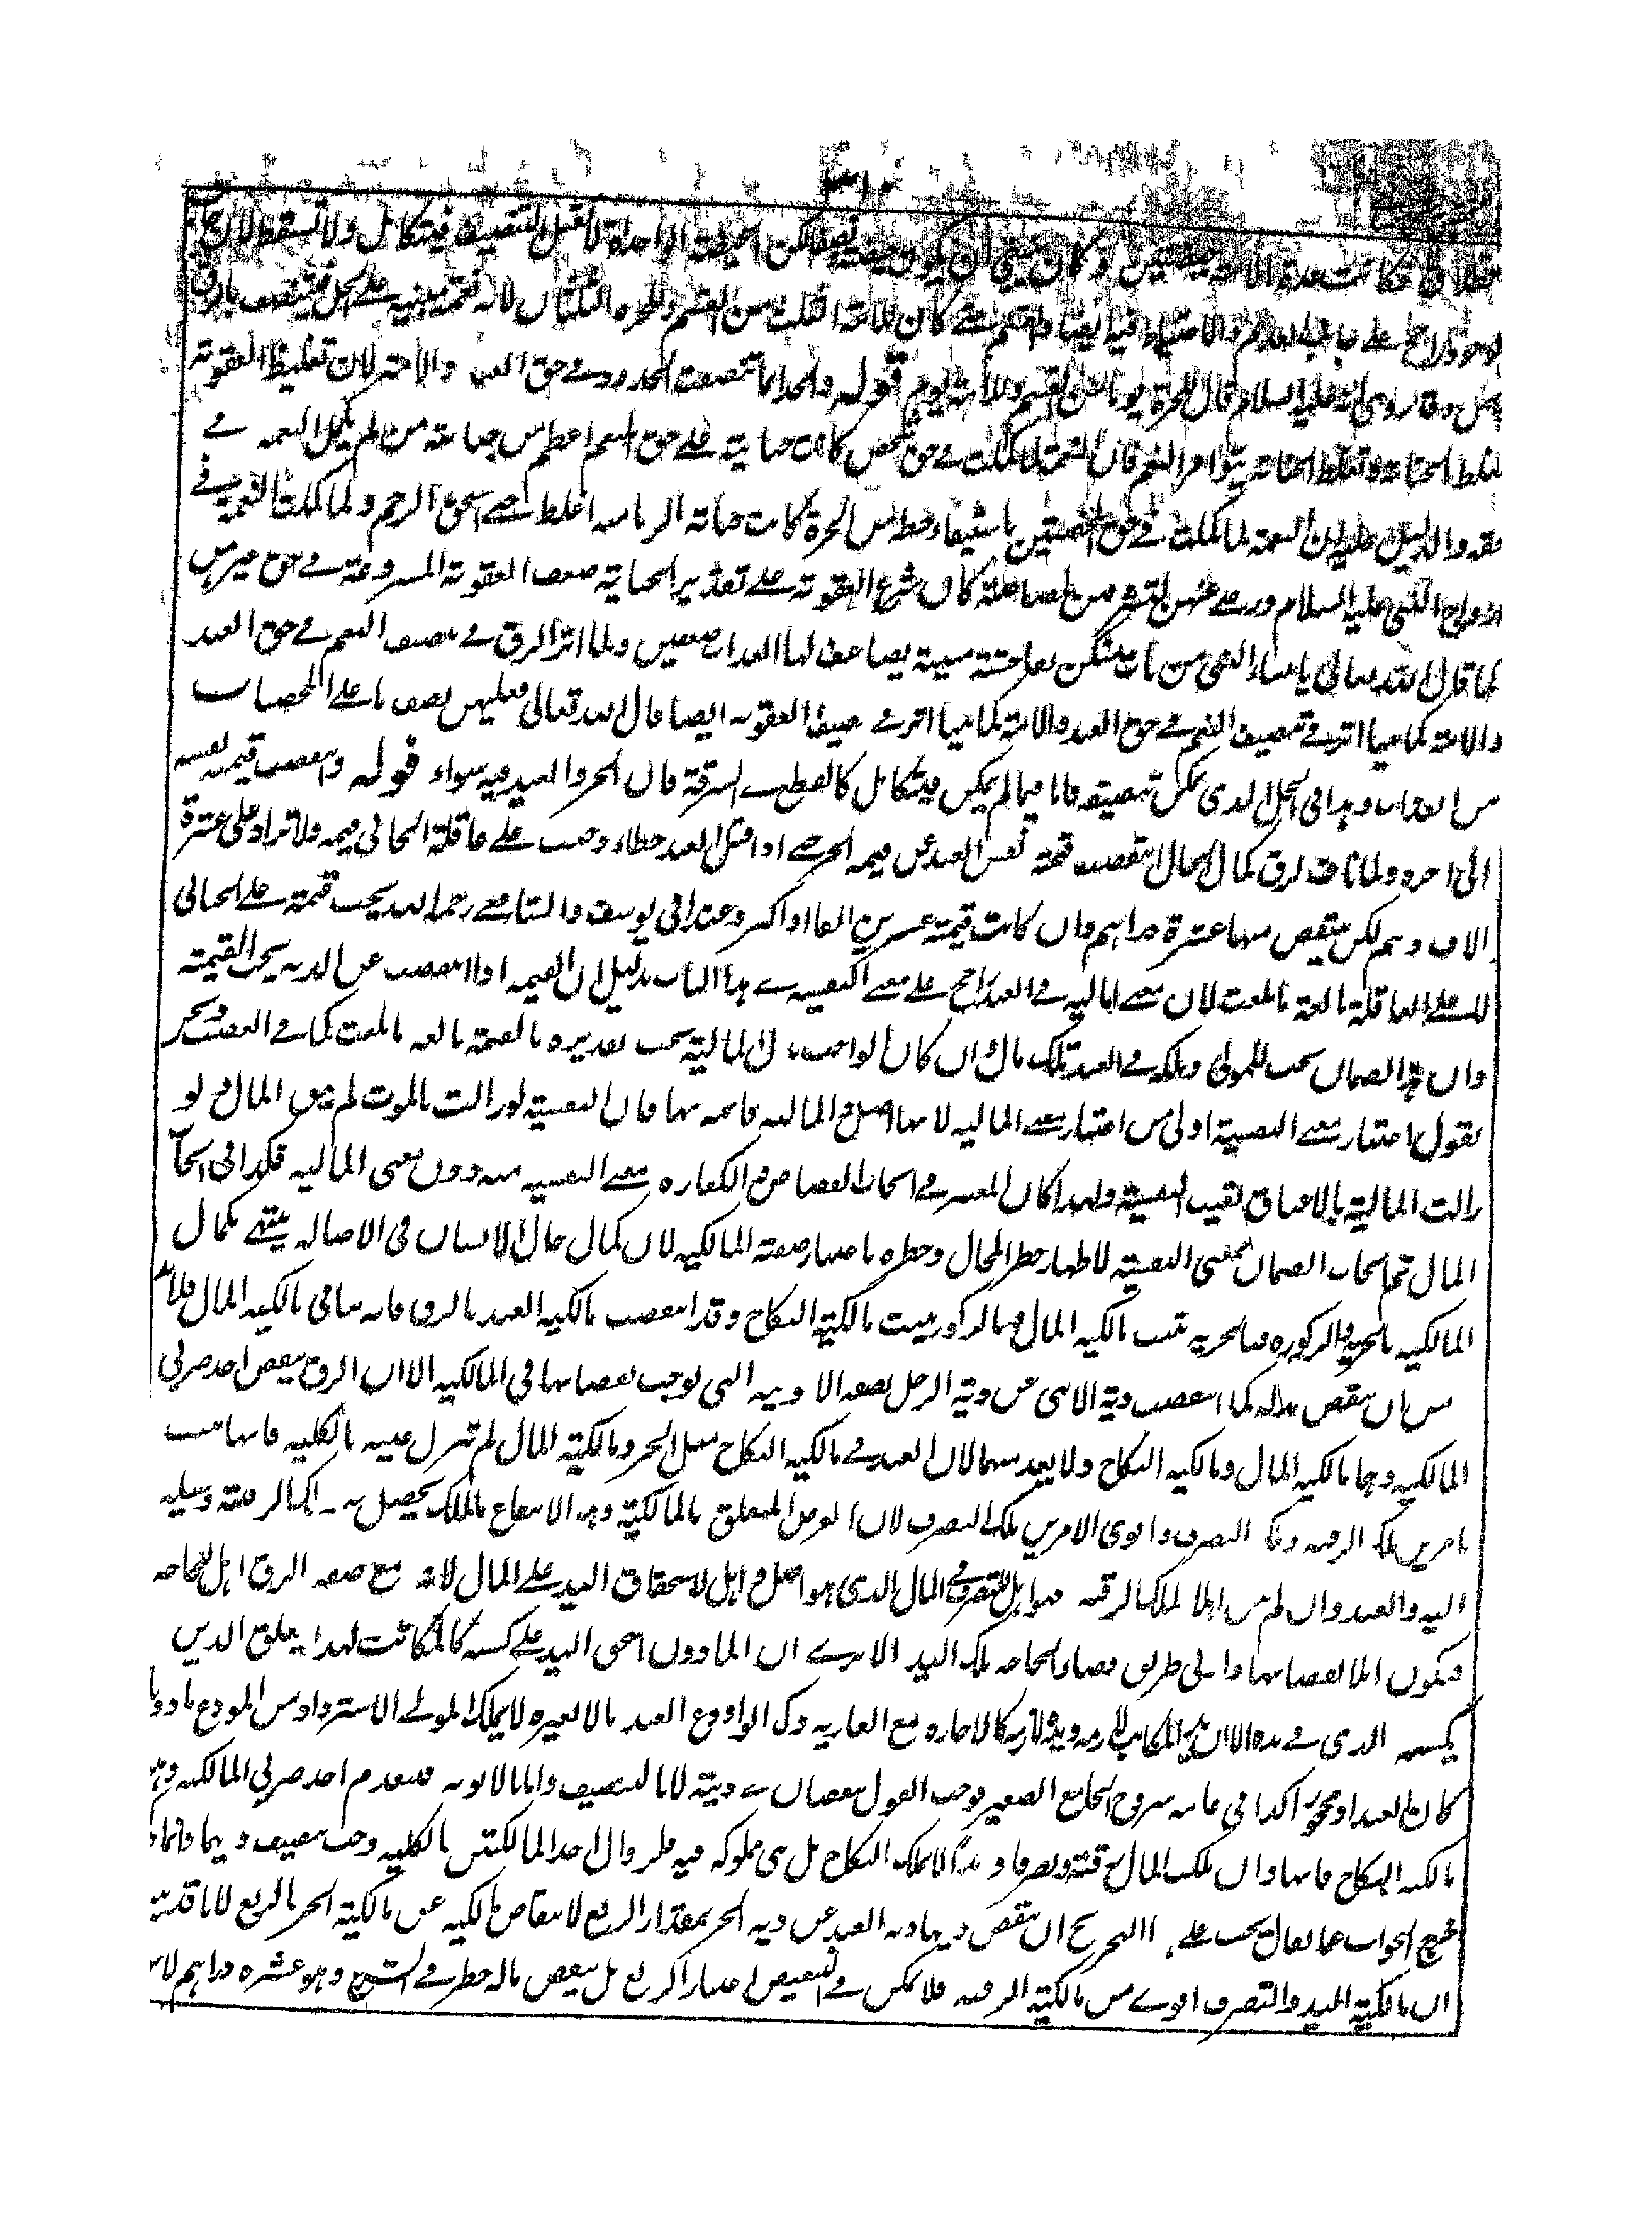 فكانت عدة الامة حيضتين وكان ينبغي ان يكون حيضة ونصفا لكن الحيضة الواحدة لا تقبل التنصيف فيتكامل ولا تسقط لان جانب
الوجود راجح على جانب العدم والاحتياط فيه ايضا والقسم حتى كان للامة الثلث من القسم وللحرة الثلثان لانه نعمة مبنية على الحل فينتصف بالرق
عليه السلام قال للحرة يومان من القسم وللامة يوم قوله وانما تنصفت الحدود في حق العبد والامة لان تغليظ العقوبة
لغلظ الجناية وتغلظ الجناية بتوافر النعم فان النعمة لما كملت في حق شخص كانت جنايته على حق المنعم اعظم من جناية من لم يكمل النعمة في
حقه والدليل عليه ان النعمة لما كملت في حق باستيفاء حظ من الحرة كانت جناية الزنا منه اغلظ حتى استحق الرجم ولما كملت النعمة في
ازواج النبي عليه السلام ورضي عنهن لشرف من كان شرع العقوبة على تقدير الجناية ضعف العقوبة المشروعة في حق غيرهن
كما قال الله تعالى يا نساء النبي من يأت منكن بفاحشة مبينة يضاعف لها العذاب ضعفين ولما اثر الرق في تنصيف النعم في حق العبد
والامة كما بينا اثر في تنصيف النعم في حق العبد والامة كما بينا اثر في تنصيف العقوبة ايضا قال الله تعالى فعليهن نصف ما على المحصنات
من العذاب وهذا في الحل الذي يمكن تنصيفه فاما فيما لم يمكن فيتكامل كالقطع في السرقة فان الحر والعبد فيه سواء قوله وانتقصت قيمة نفسه
الى اخره ولما نافى الرق كمال الحال انتقصت قيمة نفس العبد عن قيمة الحر حتى اذا قتل العبد خطاء وجب على عاقلة الجاني قيمته ولا تزاد على عشرة
الاف درهم لكن ينقص منها عشرة دراهم وان كانت قيمته عشرين الفا او اكثر وعند ابي يوسف والشافعي رحمه الله يجب قيمته على الجاني
لا على العاقلة بالغة ما بلغت لان معنى المالية في العبد راجح على معنى النفسية في هذا الباب بدليل ان القيمة اذا انتقصت عن الدية يجب القيمة
وان هذا الضمان يجب للمولى وملكه في العبد ملك مال وان كان الواجب بدل المالية يجب تقديره بالقيمة بالغة ما بلغت كما في الغصب ونحن
نقول اعتبار معنى النفسية اولى من اعتبار معنى المالية لانها اصل والمالية قائمة بها فان النفسية لو زالت بالموت لم يبق المال ولو
زالت المالية بالاعتاق بقيت النفسية ولهذا كان المعتبر في ايجاب القصاص والكفارة معنى النفسية منه دون معنى المالية فكذا في ايجاب
المال ثم ايجاب الضمان بمعنى النفسية لاظهار خطر المحال وخطره باعتبار صفة المالكية لان كمال حال الانسان في الاصالة ينتهي بكمال
المالكية بالحرية والذكورة فبالحرية تثبت مالكية المال وبالذكورة يثبت مالكية النكاح وقد انتقصت مالكية العبد بالرق فانه ينافي مالكية المال فلا بد
من ان ينقص بدله كما انتقصت دية الانثى عن دية الرجل بصفة الانوثة التي توجب نقصانها في المالكية الا ان الرق ينقص احد ضربي
المالكية وهما مالكية المال ومالكية النكاح ولا يعدمهما لان العبد في مالكية النكاح مثل الحر ومالكية المال لم تزل عنه بالكلية فانها تثبت
بامرين ملك الرقبة وملك التصرف واقوى الامرين ملك التصرف لان الغرض المتعلق بالمالكية وهو الانتفاع بالملك يحصل به وملك الرقبة وسيلة
اليه والعبد وان لم يبق اهلا لملك الرقبة فهو اهل للتصرف في المال الذي هو اصل واهل لاستحقاق اليد على المال لانه مع صفة الرق اهل للحاجة
فيكون اهلا لقضائها وادنى طريق قضاء الحاجة ملك اليد الا يرى ان الماذون استحق اليد على كسبه كالمكاتب لهذا يتعلق الدين
بكسبه الذي في يده الا ان يد المكاتب لازمة ويده غير لازمة كالاجارة مع العارية وذكر لو اودع العبد مالا لغيره لا يملك المولى الاسترداد من المودع ماذونا
كان العبد او محجورا كذا في عامة شروح الجامع الصغير فوجب القول بنقصان في ديته لا بالتنصيف واما بالانوثة فينعدم احد ضربي المالكية وهو
مالكية النكاح فانها وان ملكت المال رقبة وتصرفا ويدا لا تملك النكاح بل هي مملوكة فيه فلزوال احد المالكيتين بالكلية وجب تنصيف ديتها وانما
خرج الجواب عما يقال يجب على هذا التخريج ان ينقص دية العبد عن دية الحر بمقدار الربع لانتقاص مالكيته عن مالكية الحر بالربع لانا قد بينا
ان مالكية اليد والتصرف اقوى من مالكية الرقبة فلا يمكن في التنقيص اعتبار الربع بل ينقص ماله خطر في الشرع وهو عشرة دراهم لان